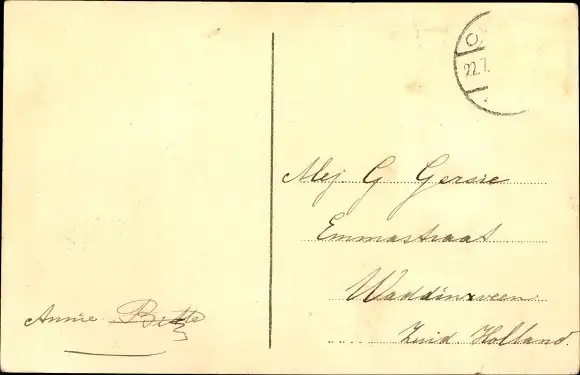 22.7
Mej. G Gersie
Emmastraat
Waddinxveen
Annie
Zuid. Holland.